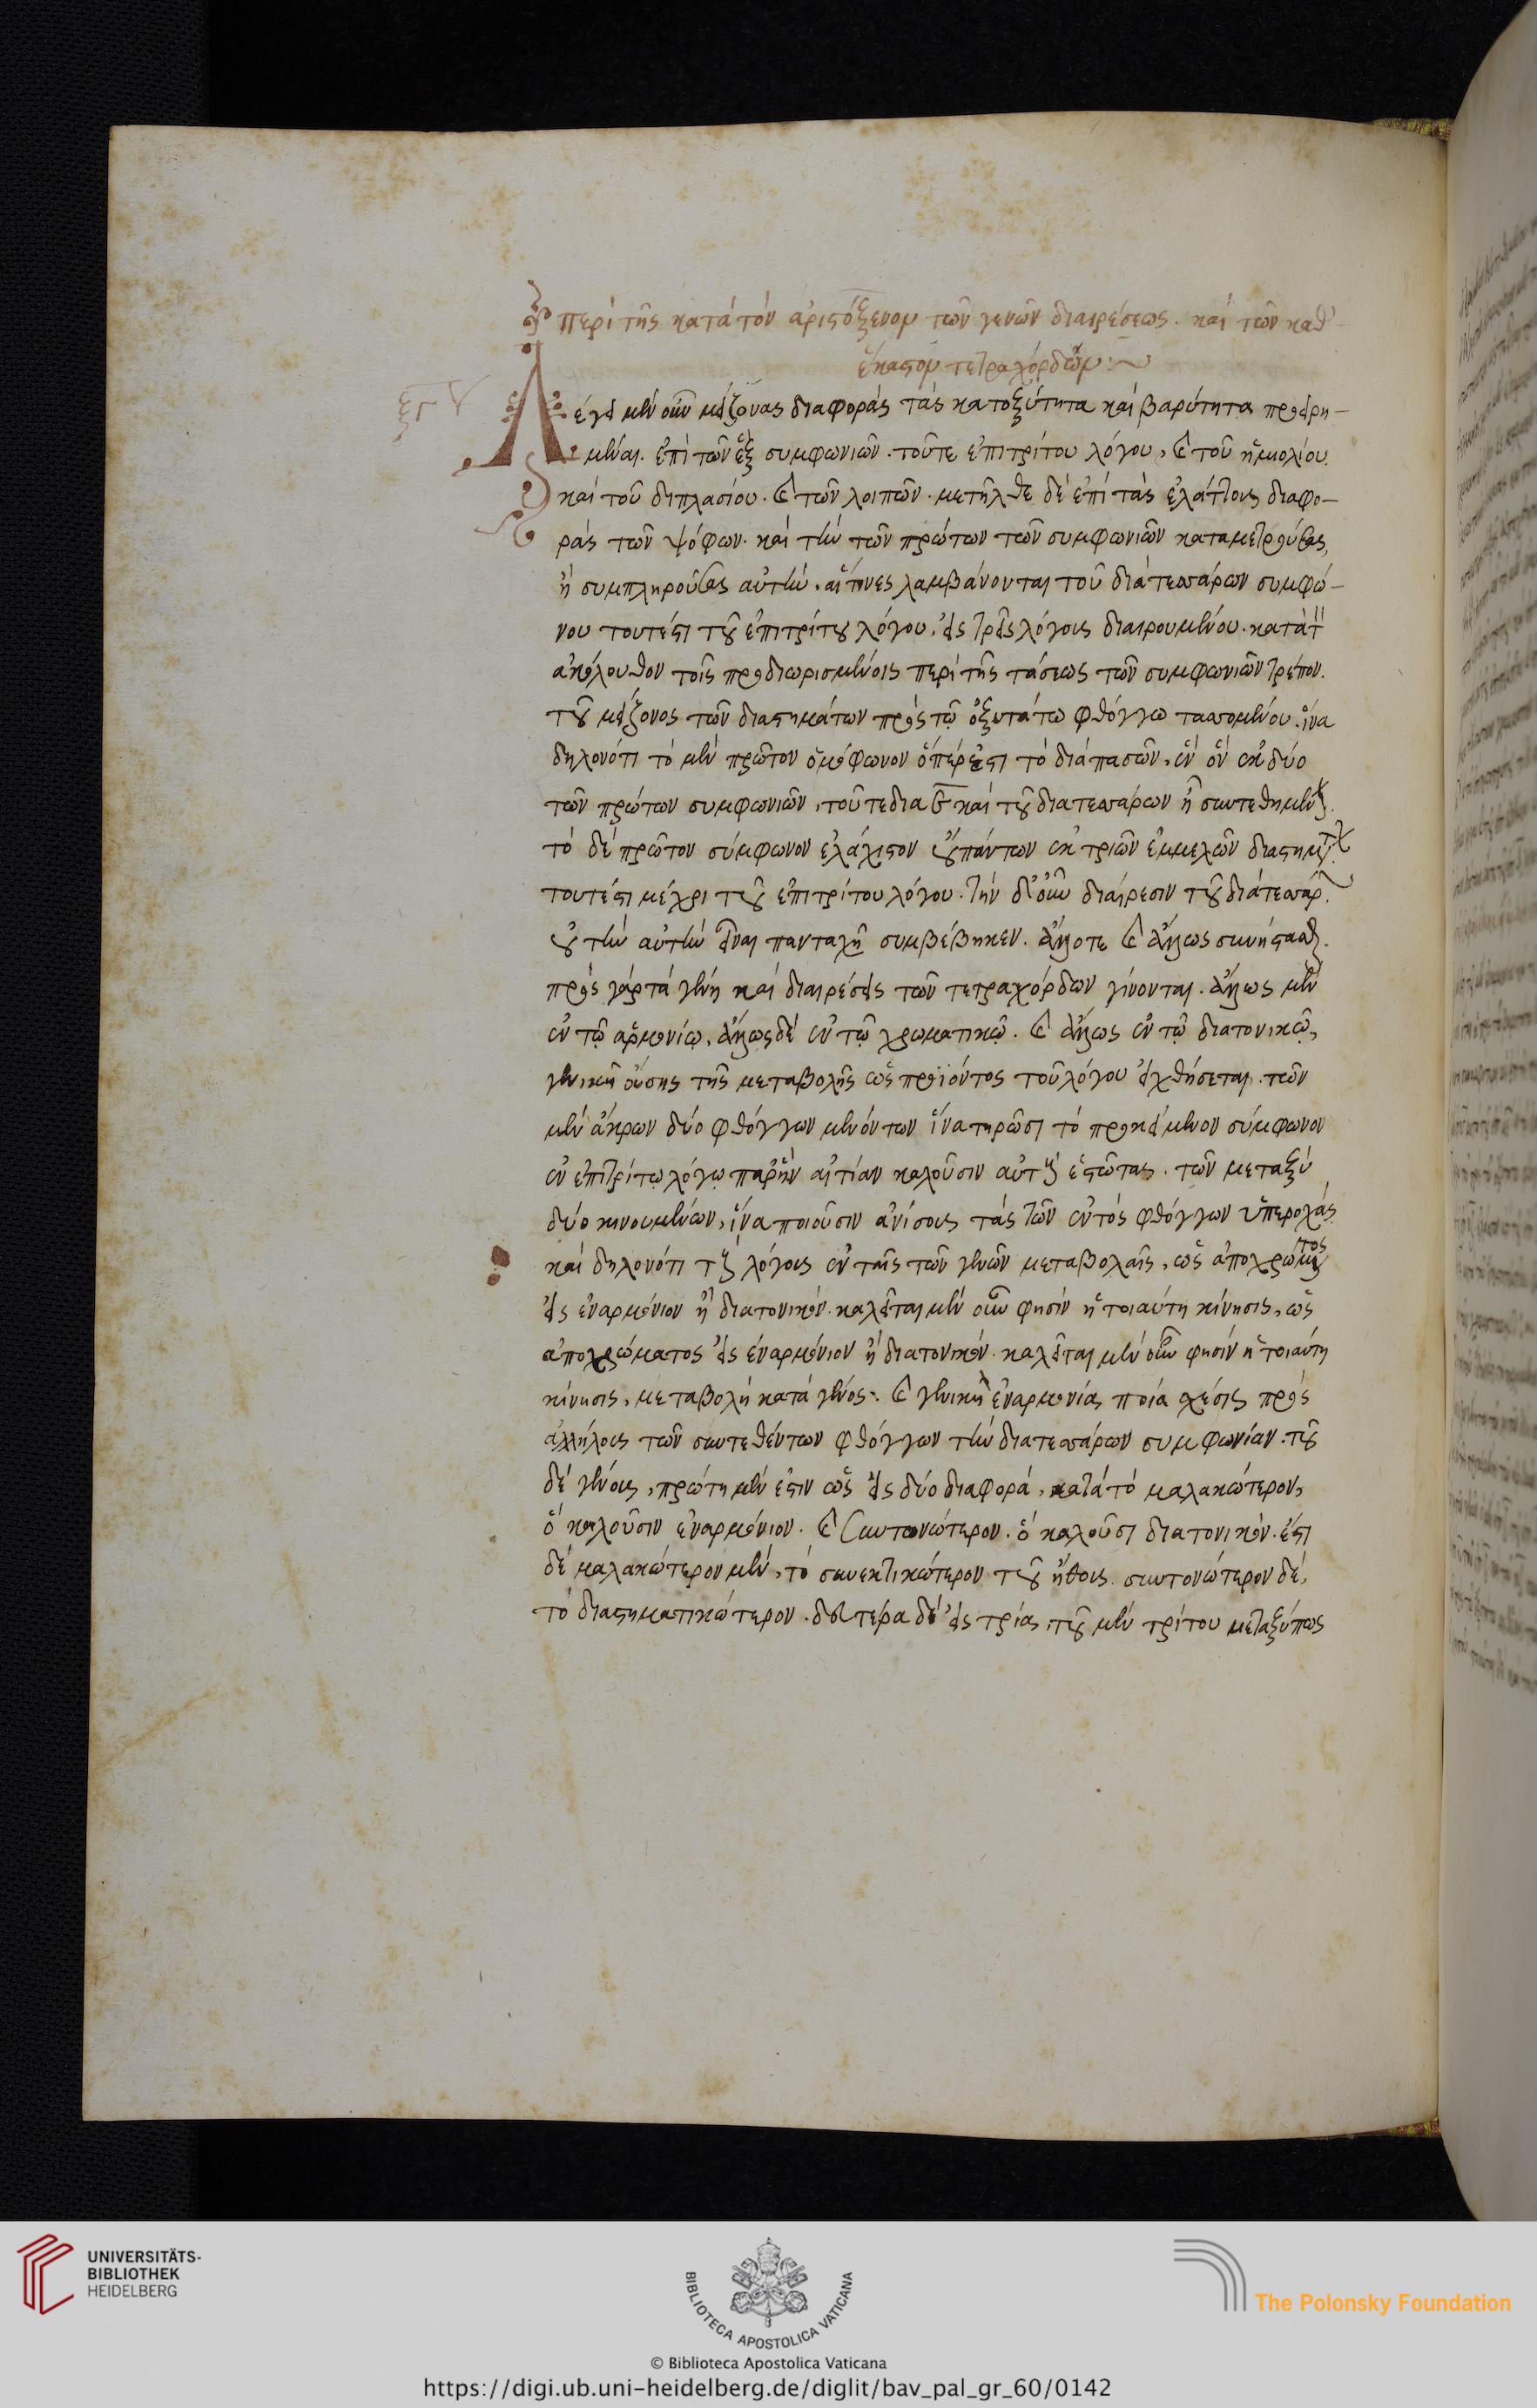 περὶ τῆς κατὰ τὸν ἀριστόξενον τῶν γενῶν διαιρέσεως. καὶ τῶν καθ
ἕκαστον τετραχόρδων:
Λέγει μὲν οὖν μείζονας διαφορὰς τὰς κατ' ὀξύτητα καὶ βαρύτητα προειρη-
μέναι. ἐπὶ τῶν ἓξ συμφωνιῶν. τοῦτε ἐπιτρίτου λόγου, καὶ τοῦ ἡμιολίου.
καὶ τοῦ διπλασίου. καὶ τῶν λοιπῶν. μετῆλθε δὲ ἐπὶ τὰς ἐλάττους διαφο-
ρὰς τῶν ψόφων. καὶ τὴν τῶν πρώτων τῶν συμφωνιῶν καταμετρούσας,
ἢ συμπληρούσας αὐτὴν. αἵτινες λαμβάνονται τοῦ διὰ τεσσάρων συμφώ-
νου τουτέστι τοῦ ἐπιτρίτου λόγου, εἰς τρεῖς λόγους διαιρουμένου. κατὰ τ
ἀκόλουθον τοῖς προδιωρισμένοις περὶ τῆς τάσεως τῶν συμφωνιῶν τρέπον.
τοῦ μείζονος τῶν διαστημάτων πρὸς τῷ ὀξυτάτω φθόγγω τασσομένου. ἵνα
δηλονότι τὸ μὲν πρῶτον ὁμόφωνον ὅπέρ ἐστι τὸ διὰ πασῶν, ἓν ὂν ἐκ δύο
τῶν πρώτων συμφωνιῶν, τοῦ τε δια ε καὶ τοῦ διατεσσάρων ᾖ συντεθημέν
τὸ δὲ πρῶτον σύμφωνον ἐλάχιστον ὂν πάντων ἐκ τριῶν ἐμμελῶν διαστημάτων
τουτέστι μέχρι τοῦ ἐπιτρίτου λόγου. τὴν δ' οὖν διαίρεσιν τοῦ διὰ τεσσάρ.
οὐ τὴν αὐτὴν εἶναι πανταχῆ συμβέβηκεν. ἄλλοτε καὶ ἄλλως συνίστασθαι.
πρὸς γὰρ τὰ γένη καὶ διαιρέσεις τῶν τετραχόρδων γίνονται. ἄλλως μὲν
ἐν τῷ ἁρμονίῳ, ἄλλως δὲ ἐν τῷ χρωματικῷ. καὶ ἄλλως ἐν τῷ διατονικῷ,
γενικῆ οὔσης τῆς μεταβολῆς ὡς προϊόντος τοῦ λόγου εἰχθήσεται. τῶν
μὲν ἄκρων δύο φθόγγων μενόντων ἵνα τηρῶσι τὸ προκείμενον σύμφωνον
ἐν ἐπιτρίτῳ λόγῳ παρ' ἣν αἰτίαν καλοῦσιν αὐτοὺς ἑστῶτας. τῶν μεταξὺ
δύο κινουμένων, ἵνα ποιοῦσιν ἀνίσους τὰς τῶν ἐντὸς φθόγγων ὑπεροχάς
καὶ δηλονότι τοὺς λόγους ἐν ταῖς τῶν γενῶν μεταβολαῖς, ὡς ἀπὸ χρώματος
εἰς ἐναρμόνιον ἢ διατονικὸν. καλεῖται μὲν οὖν φησὶν ἡ τοιαύτη κίνησις, ὡς
ἀπὸ χρώματος εἰς ἐναρμόνιον ἢ διατονικὸν. καλεῖται μὲν οὖν φησὶν ἡ τοιαύτη
κίνησις, μεταβολὴ κατὰ γένος. καὶ γενικὴ ἐναρμονίας ποία σχέσις πρὸς
ἀλλήλους τῶν συντεθέντων φθόγγων τὴν διατεσσάρων συμφωνίαν. τοῦ
δὲ γένους, πρώτη μέν ἐστιν ὡς εἰς δύο διαφορά, κατὰ τὸ μαλακώτερον,
ὃ καλοῦσιν ἐναρμόνιον. καὶ συντονώτερον. ὃ καλοῦσι διατονικὸν. ἔστι
δὲ μαλακώτερον μὲν, τὸ συνεκτικώτερον τοῦ ἤθους. συντονώτερον δὲ,
τὸ διαστηματικώτερον. δευτέρα δὲ εἰς τρία, τοῦ μὲν τρίτου μεταξύ πως
UNIVERSITÄTS-
BIBLIOTHEK
HEIDELBERG
BIBLIOTECA APOSTOLICA VATICANA
The Polonsky Foundation
© Biblioteca Apostolica Vaticana
https://digi.ub.uni-heidelberg.de/diglit/bav_pal_gr_60/0142